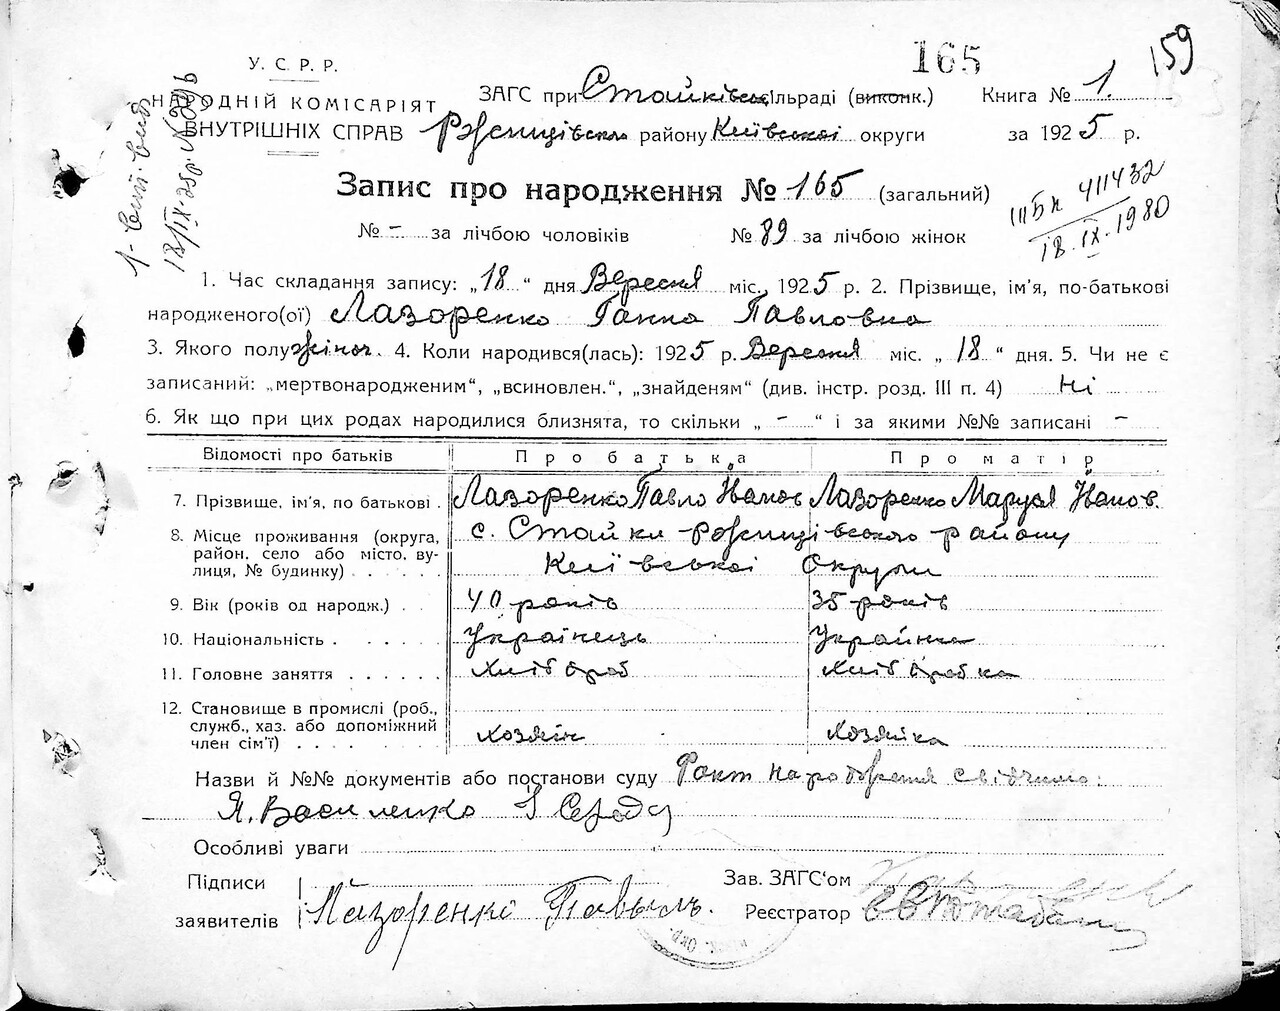 165
159
У. С. Р. Р.
НАРОДНІЙ КОМІСАРІЯТ
ВНУТРІШНІХ СПРАВ
ЗАГС при Стайківськ сільраді (виконк.) Книга № 1.
Ржищівськ району Київської округи за 1925 р.
Запис про народження № 165 (загальний)
№ - за лічбою чоловіків № 89 за лічбою жінок
ІІІ БК 411432
18.IX.1980
18/IX-25р. № 209
1. Час складання запису: „18“ дня Вересня міс., 1925 р. 2. Прізвище, ім'я, по-батькові
народженого(ої) Лазоренко Ганна Павловна
3. Якого полу жіноч. 4. Коли народився(лась): 1925 р. Вересня міс. „18“ дня. 5. Чи не є
записаний: „мертвонародженим“, „всиновлен.“, „знайденям“ (див. інстр. розд. III п. 4) Ні
6. Як що при цих родах народилися близнята, то скільки „-“ і за якими №№ записані -
Відомості про батьків Про батька Про матір
7. Прізвище, ім'я, по батькові . Лазоренко Павло Іванов Лазоренко Маруся Іванов.
8. Місце проживання (округа, район, село або місто, вулиця, № будинку) . . . . . с. Стайки Ржищівського району
Київської Округи
9. Вік (років од народж.) . . 40 років 35 років
10. Національність . . . . . Українець Украйнка
11. Головне заняття . . . . . . Хлібороб Хліборобка
12. Становище в промислі (роб., служб., хаз. або допоміжний член сім'ї) . . . . хозяїн хозяйка
Назви й №№ документів або постанови суду Факт народження свідчимо:
Я. Василенко І Середа
Особливі уваги
Підписи
заявителів Лазоренко Павыль.
Зав. ЗАГС'ом
Реєстратор